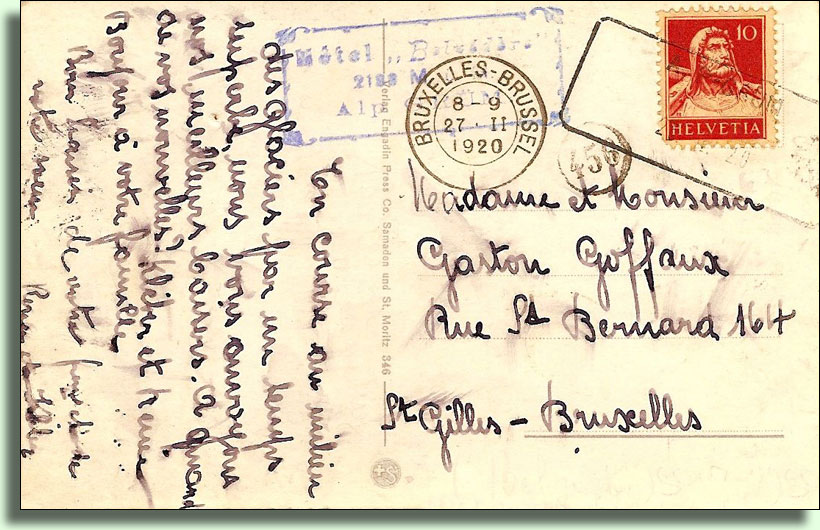 Hôtel „Belvédère"
Alp
BRUXELLES-BRUSSEL
8-9
27 · II
1920
10
HELVETIA
456
Madame et Monsieur
Gaston Goffaux
Rue St Bernard 164
St Gilles - Bruxelles
Verlag Engadin Press Co. Samaden und St. Moritz 346
En course au milieu
des glaciers par un temps
superbe, nous vous envoyons
nos meilleurs baisers. A quand
de vos nouvelles? et
Bonjour à votre famille
de votre